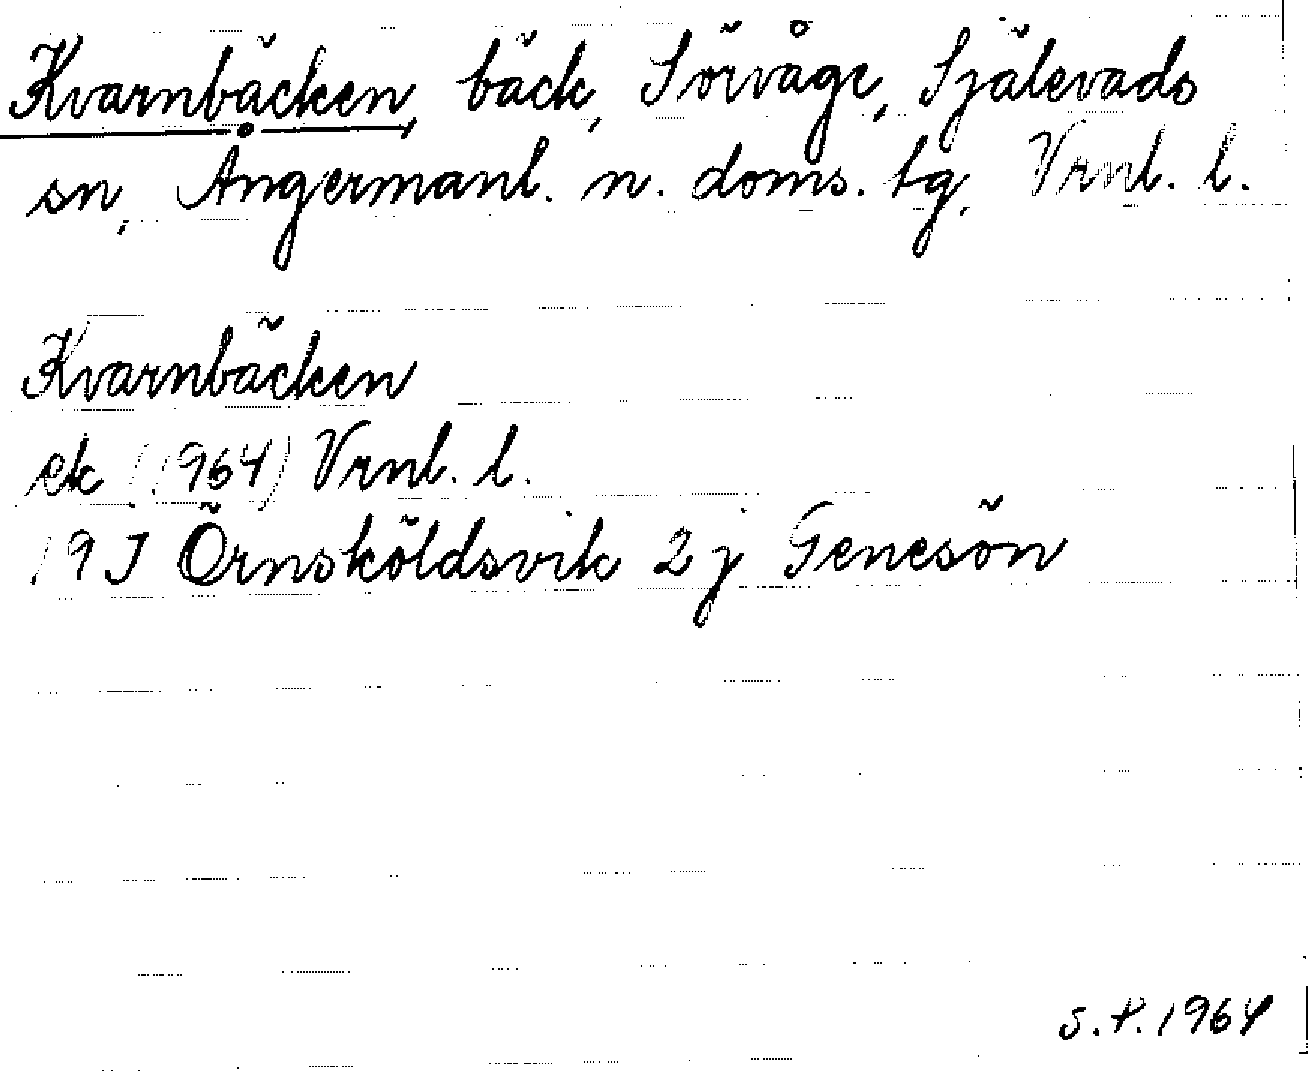 Kvarnbäcken, bäck, Sörvåge, Själevads
sn, Ångermanl. n. doms. tg, Vrnl. l.
Kvarnbäcken
ek (1964) Vrnl. l.
19J Örnsköldsvik 2 j Genesön
S.P. 1964